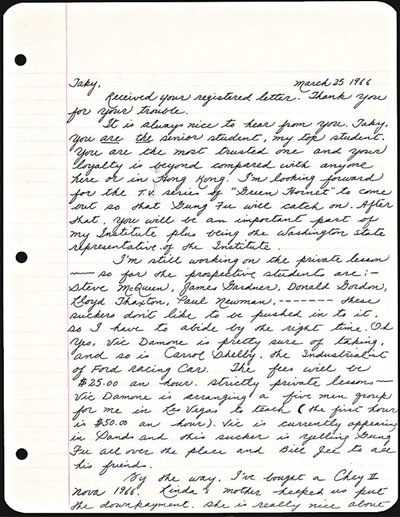 Taky, March 25 1966
Received your registered letter. Thank you
for your trouble.
It is always nice to hear from you. Taky,
you are the senior student, my top student.
You are the most trusted one and your
loyalty is beyond compared with anyone
here or in Hong Kong. I'm looking forward
for the T.V. series of "Green Hornet" to come
out so that Gung Fu will catch on. After
that, you will be an important part of
my Institute plus being the Washington State
representative of the Institute.
I'm still working on the private lesson
—— so far the prospective students are :-
Steve McQueen, James Gardner, Donald Gordon,
Lloyd Thaxton, Paul Newman, ------- these
suckers don't like to be pushed in to it,
so I have to abide by the right time. Oh
yes, Vic Damone is pretty sure of taking,
and so is Carrol Shelby, the Industrialist
of Ford racing Car. The fees will be
$25.00 an hour. Strictly private lessons —
Vic Damone is arranging a five men group
for me in Las Vegas to teach (the first hour
is $50.00 an hour). Vic is currently appearing
in Sands and this sucker is yelling Gung
Fu all over the place and Bill Lee to all
his friends.
By the way, I've bought a Chey II
Nova 1966. Linda's mother helped us put
the downpayment. She is really nice about